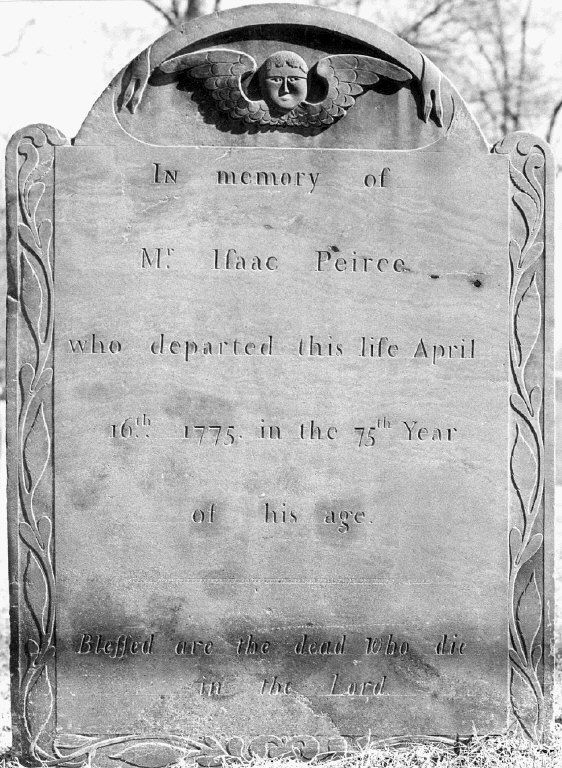 In memory of
Mr. Iſaac Peirce
who departed this life April
16th. 1775. in the 75th Year
of his age.
Bleſſed are the dead who die
in the Lord